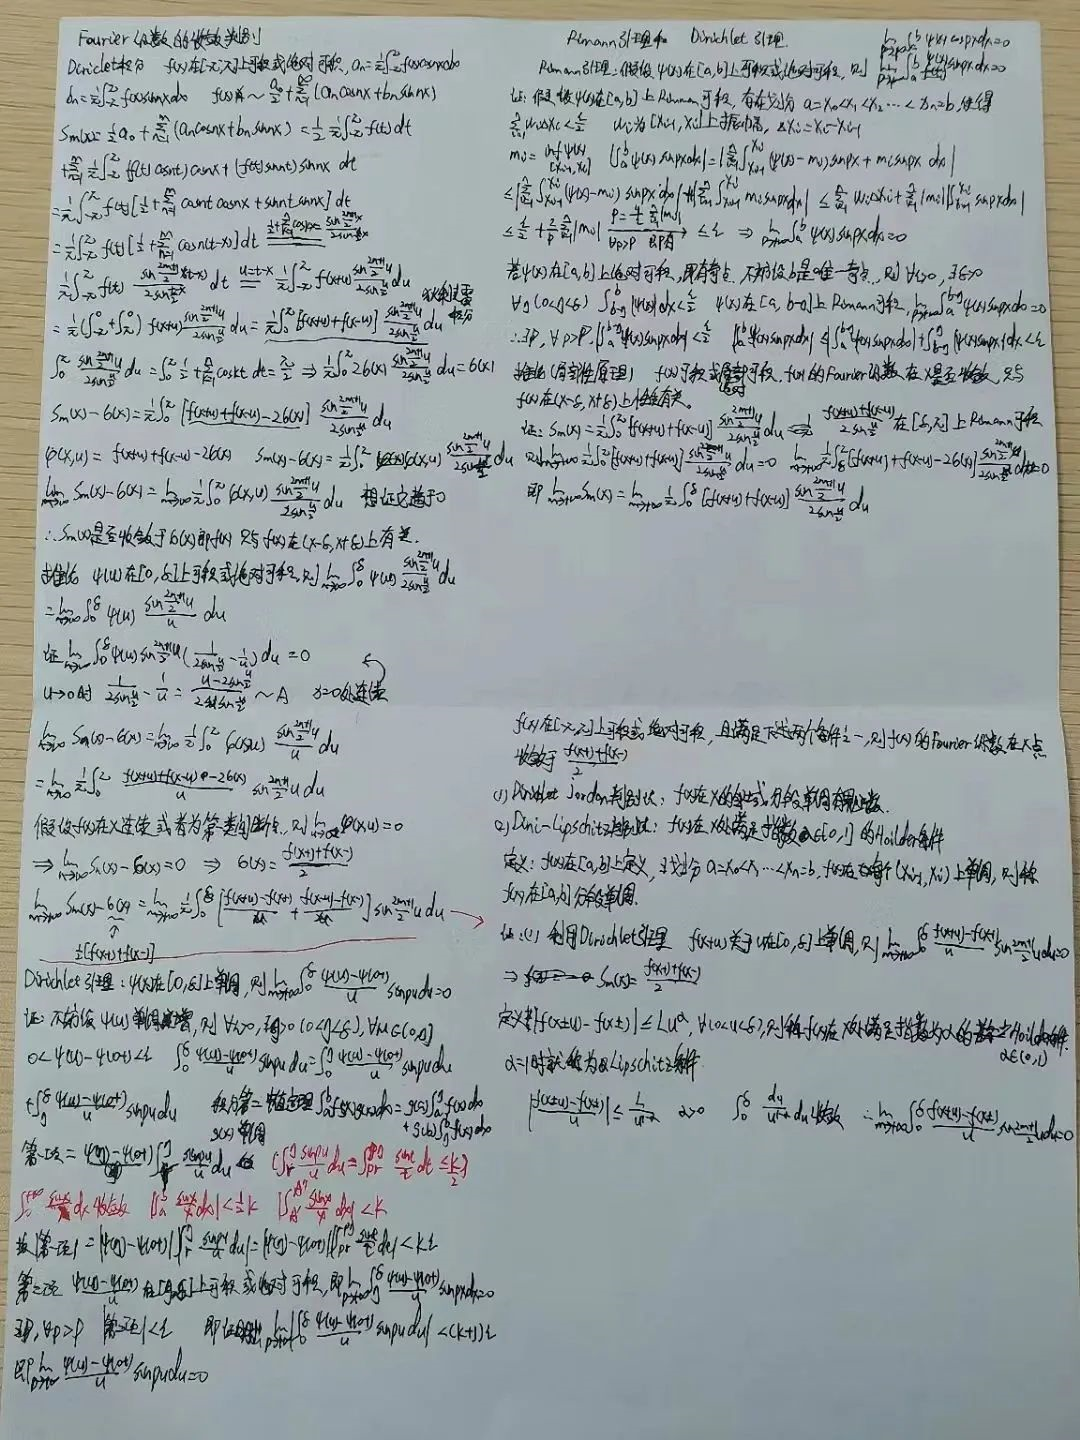 Fourier级数的收敛判别
Diriclet积分 f(x)在[-π,π]上可积或绝对可积, an=1/π∫_{-π}^{π}f(x)cosnxdx
bn=1/π∫_{-π}^{π}f(x)sinnxdx f(x)~a0/2+Σ_{n=1}^{∞}(an cosnx+bn sinnx)
Sm(x)=1/2 a0+Σ_{n=1}^{m}(an cosnx+bn sinnx)=1/2 1/π∫_{-π}^{π}f(t)dt
+Σ_{n=1}^{m} 1/π∫_{-π}^{π}(f(t)cosnt)cosnx+(f(t)sinnt)sinnx dt
=1/π∫_{-π}^{π}f(t)[1/2+Σ_{n=1}^{m}cosntcosnx+sinntsinnx]dt
=1/π∫_{-π}^{π}f(t)[1/2+Σ_{n=1}^{m}cosn(t-x)]dt
1/π∫_{-π}^{π}f(t) dt u=t-x 1/π∫_{-π}^{π}f(x+u) sin(2m+1)/2 u / 2sin u/2 du
=1/π(∫_{-π}^{0}+∫_{0}^{π})f(x+u) sin(2m+1)/2 u / 2sin u/2 du=1/π∫_0^π[f(x+u)+f(x-u)] sin(2m+1)/2 u / 2sin u/2 du
∫_0^π sin(2m+1)/2 u / 2sin u/2 du=∫_0^π 1/2+Σcosktdt=π/2 ⇒1/π∫_0^π 2б(x) sin(2m+1)/2 u / 2sin u/2 du=б(x)
Sm(x)-б(x)=1/π∫_0^π[f(x+u)+f(x-u)-2б(x)] sin(2m+1)/2 u / 2sin u/2 du
φ(x,u)=f(x+u)+f(x-u)-2б(x) Sm(x)-б(x)=1/π∫_0^π φ(x,u) sin(2m+1)/2 u / 2sin u/2 du
lim_{m→∞}Sm(x)-б(x)=lim_{m→∞}1/π∫_0^π φ(x,u) sin(2m+1)/2 u / 2sin u/2 du 想证它趋于0
∴Sm(x)是否收敛于б(x)即f(x)只与f(x)在(x-δ,x+δ)上有关.
推论 ψ(u)在[0,δ]上可积或绝对可积,则lim_{m→∞}∫_0^δ ψ(u) sin(2m+1)/2 u / 2sin u/2 du
=lim_{m→∞}∫_0^δ ψ(u) sin(2m+1)/2 u / u du
证lim_{m→∞}∫_0^δ ψ(u)sin(2m+1)/2 u(1/2sin u/2 - 1/u)du=0
u→0时 1/2sin u/2 - 1/u = u-2sin u/2 / 2usin u/2 ~A x=0处连续
lim_{m→∞}Sm(x)-б(x)=lim_{m→∞}1/π∫_0^π φ(x,u) sin(2m+1)/2 u / u du
=lim_{m→∞}1/π∫_0^π f(x+u)+f(x-u)-2б(x) / u sin(2m+1)/2 u du
假设f(x)在x连续或者为第一类间断点,则lim φ(x,u)=0
⇒lim_{m→∞}Sm(x)-б(x)=0 ⇒ б(x)=f(x+)+f(x-)/2
lim_{m→∞}Sm(x)-б(x)=lim_{m→∞}1/π∫_0^δ[f(x+u)-f(x+)/u + f(x-u)-f(x-)/u]sin(2m+1)/2 u du
1/2[f(x+)+f(x-)]
Dirichlet引理:ψ(x)在[0,δ]上单调,则lim_{p→+∞}∫_0^δ ψ(u)-ψ(0+)/u sinpudu=0
证:不妨设ψ(u)单调递增,则∀ε>0,∃η>0(0<η<δ),∀u∈(0,η]
0<ψ(u)-ψ(0+)<ε ∫_0^δ ψ(u)-ψ(0+)/u sinpudu=∫_0^η ψ(u)-ψ(0+)/u sinpudu
+∫_η^δ ψ(u)-ψ(0+)/u sinpudu 积分第二中值定理∫_a^b f(x)g(x)dx=g(a)∫_a^η f(x)dx
g(x)单调 +g(b)∫_η^b f(x)dx
第一项=ψ(η)-ψ(0+)∫_r^η sinpu/u du (∫_r^η sinpu/u du=∫_{pr}^{pη} sint/t dt≤K)
∫_0^{+∞} sinx/x dx收敛 |∫_A^{A''} sinx/x dx|<K
故|第一项|=|ψ(η)-ψ(0+)||∫_r^η sinpu/u du|=|ψ(η)-ψ(0+)||∫_{pr}^{pη} sint/t dt|<Kε
第二项 ψ(u)-ψ(0+)/u 在[η,δ]上可积或绝对可积,即lim_{p→+∞}∫_η^δ ψ(u)-ψ(0+)/u sinpxdx=0
∃P,∀p>P |第二项|<ε 即 lim_{p→+∞}|∫_0^δ ψ(u)-ψ(0+)/u sinpudu|<(K+1)ε
即lim_{p→+∞} ψ(u)-ψ(0+)/u sinpudu=0
Rimann引理和 Dirichlet引理. lim_{p→+∞}∫_a^b ψ(x)cospxdx=0
Rimann引理:假设ψ(x)在[a,b]上可积或绝对可积,则 lim_{p→+∞}∫_a^b ψ(x)sinpxdx=0
证:假设ψ(x)在[a,b]上Rimann可积,存在划分a=x0<x1<x2…<xn=b,使得
Σ_{i=1}^{n}wiΔxi<ε/2 wi为[xi-1,xi]上振幅, Δxi=xi-xi-1
mi=inf ψ(x) [xi-1,xi] |∫_a^b ψ(x)sinpxdx|=|Σ∫_{xi-1}^{xi}(ψ(x)-mi)sinpx+mi sinpx dx|
≤|Σ∫_{xi-1}^{xi}(ψ(x)-mi)sinpxdx|+|Σ∫_{xi-1}^{xi}mi sinpxdx|≤Σwi Δxi+Σ|mi||∫_{xi-1}^{xi}sinpxdx|
≤ε/2+2/pΣ|mi| P=4/εΣ|mi| ∀p>P 即有 ≤ε ⇒lim_{p→+∞}∫_a^b ψ(x)sinpxdx=0
若ψ(x)在[a,b]上绝对可积,即有奇点.不妨设b是唯一奇点,则∀ε>0,∃δ>0
∀η(0<η<δ) ∫_{b-η}^b|ψ(x)|dx<ε/2 ψ(x)在[a,b-η]上Rimann可积,lim_{p→+∞}∫_a^{b-η}ψ(x)sinpxdx=0
∴∃P,∀p>P,|∫_a^{b-η}ψ(x)sinpxdx|<ε/2 |∫_a^b ψ(x)sinpxdx|≤|∫_a^{b-η}ψ(x)sinpxdx|+∫_{b-η}^b|ψ(x)sinpx|dx<ε
推论(局部性原理) f(x)可积或绝对可积,f(x)的Fourier级数在x是否收敛,只与
f(x)在(x-δ,x+δ)上性质有关。
证:Sm(x)=1/π∫_0^π[f(x+u)+f(x-u)] sin(2m+1)/2 u / 2sin u/2 du f(x+u)+f(x-u) / 2sin u/2 在[δ,π]上Rimann可积
则lim_{m→+∞}1/π∫_δ^π[f(x+u)+f(x-u)] sin(2m+1)/2 u / 2sin u/2 du=0 lim_{m→+∞}1/π∫_δ^π[f(x+u)+f(x-u)-2б(x)] sin(2m+1)/2 u / 2sin u/2 du=0
即lim_{m→+∞}Sm(x)=lim_{m→+∞}1/π∫_0^δ[f(x+u)+f(x-u)] sin(2m+1)/2 u / 2sin u/2 du
f(x)在[-π,π]上可积或绝对可积,且满足下述两个条件之一,则f(x)的Fourier级数在x点
收敛于 f(x+)+f(x-)/2
(1) Dirichlet Jordan判别法: f(x)在x的 分段单调有界函数.
(2) Dini-Lipschitz判别法: f(x)在x处满足指数α∈(0,1]的Hoilder条件
定义:f(x)在[a,b]上定义,∃划分a=x0<x1…<xn=b,f(x)在每个(xi-1,xi)上单调,则称
f(x)在[a,b]分段单调.
证:(1) 利用Dirichlet引理 f(x+u)关于u在[0,δ]上单调,则lim_{m→+∞}∫_0^δ f(x+u)-f(x+)/u sin(2m+1)/2 u du=0
⇒ Sm(x)=f(x+)+f(x-)/2
定义若|f(x±u)-f(x±)|≤Lu^α,∀(0<u<δ),则称f(x)在x处满足指数为α的 Hoilder条件. α∈(0,1)
α=1时就称为Lipschitz条件.
|f(x±u)-f(x±)|/u≤L/u^{1-α} α>0 ∫_0^δ du/u^{1-α} du收敛 ∴lim_{m→+∞}∫_0^δ f(x±u)-f(x±)/u sin(2m+1)/2 u du=0